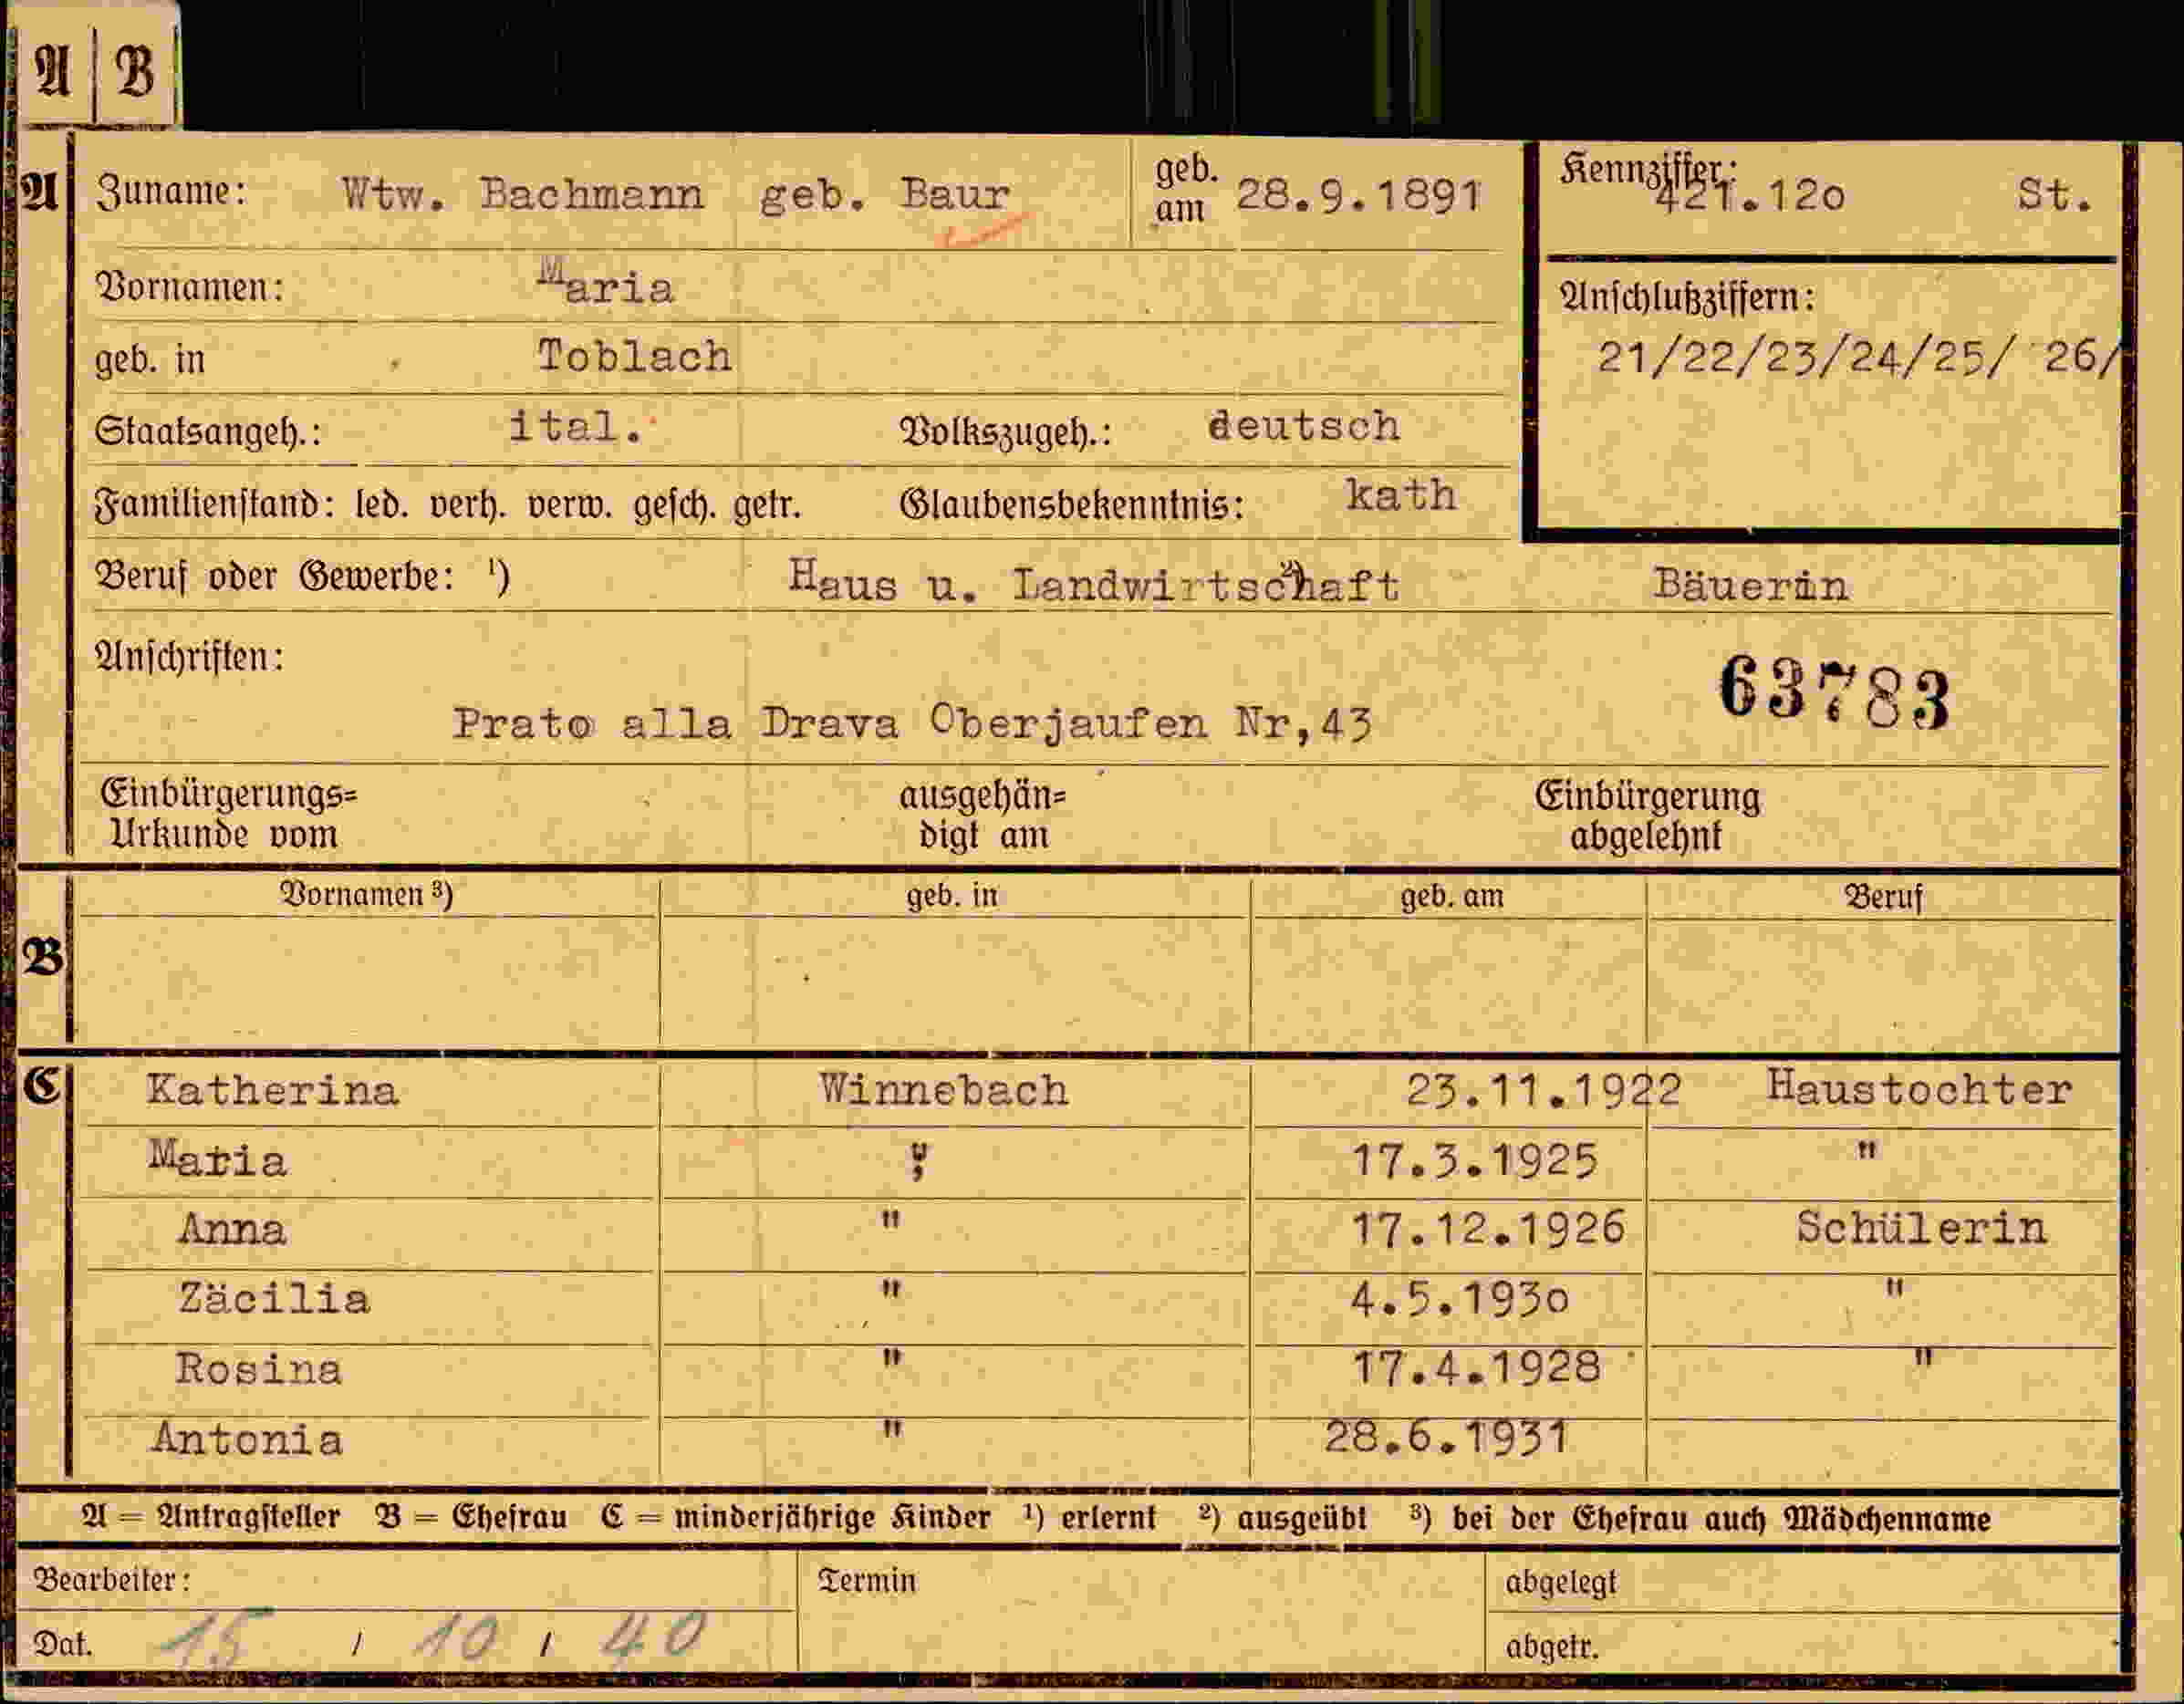 A | B
A Zuname: Wtw. Bachmann geb. Baur geb. am 28.9.1891
Kennziffer: 421.12o St.
Vornamen: Maria
Anschlußziffern:
geb. in Toblach
21/22/23/24/25/ 26/
Staatsangeh.: ital. Volkszugeh.: deutsch
Familienstand: led. verh. verw. gesch. getr. Glaubensbekenntnis: kath
Beruf oder Gewerbe: ¹) Haus u. Landwirtschaft ²) Bäuerin
Anschriften:
63783
Prato alla Drava Oberjaufen Nr,43
Einbürgerungs= ausgehän= Einbürgerung
Urkunde vom digt am abgelehnt
Vornamen ³) geb. in geb. am Beruf
B
C Katherina Winnebach 23.11.1922 Haustochter
Maria " 17.3.1925 "
Anna " 17.12.1926 Schülerin
Zäcilia " 4.5.193o "
Rosina " 17.4.1928 "
Antonia " 28.6.1931
A = Antragsteller B = Ehefrau C = minderjährige Kinder ¹) erlernt ²) ausgeübt ³) bei der Ehefrau auch Mädchenname
Bearbeiter: Termin abgelegt
Dat. 15 / 10 / 40 abgetr.